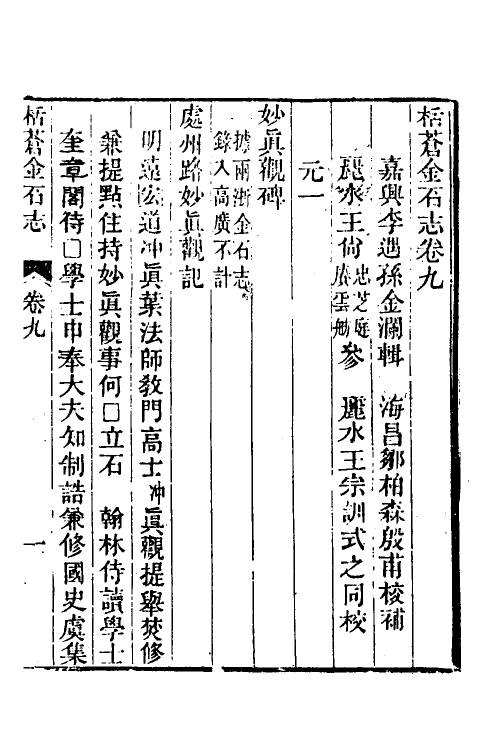 栝蒼金石志卷九
嘉興李遇孫金瀾輯　海昌鄒柏森殷甫校補
麗水王尙忠芝庭赓雲舫參　麗水王宗訓式之同校
元一
妙眞觀碑
據兩浙金石志
錄入高廣不計
處州路妙眞觀記
明遠宏道冲眞葉法師敎門高士冲眞觀提舉焚修
兼提點住持妙眞觀事何□立石　翰林侍讀學士
奎章閣侍□學士中奉大夫知制誥兼修國史虞集
栝蒼金石志　卷九　一